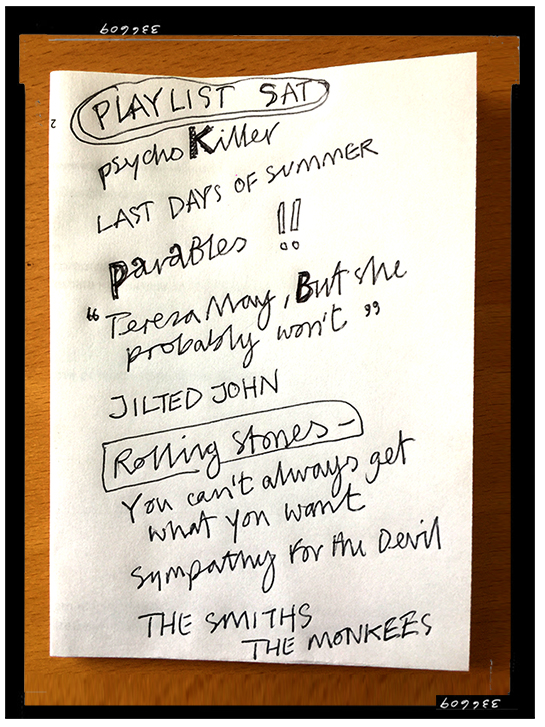 336609
2
PLAYLIST SAT
psycho Killer
LAST DAYS OF SUMMER
Parables !!
"Teresa May, But she
probably won't"
JILTED JOHN
Rolling Stones –
You can't always get
what you want
Sympathy for the Devil
THE SMITHS
THE MONKEES
336609